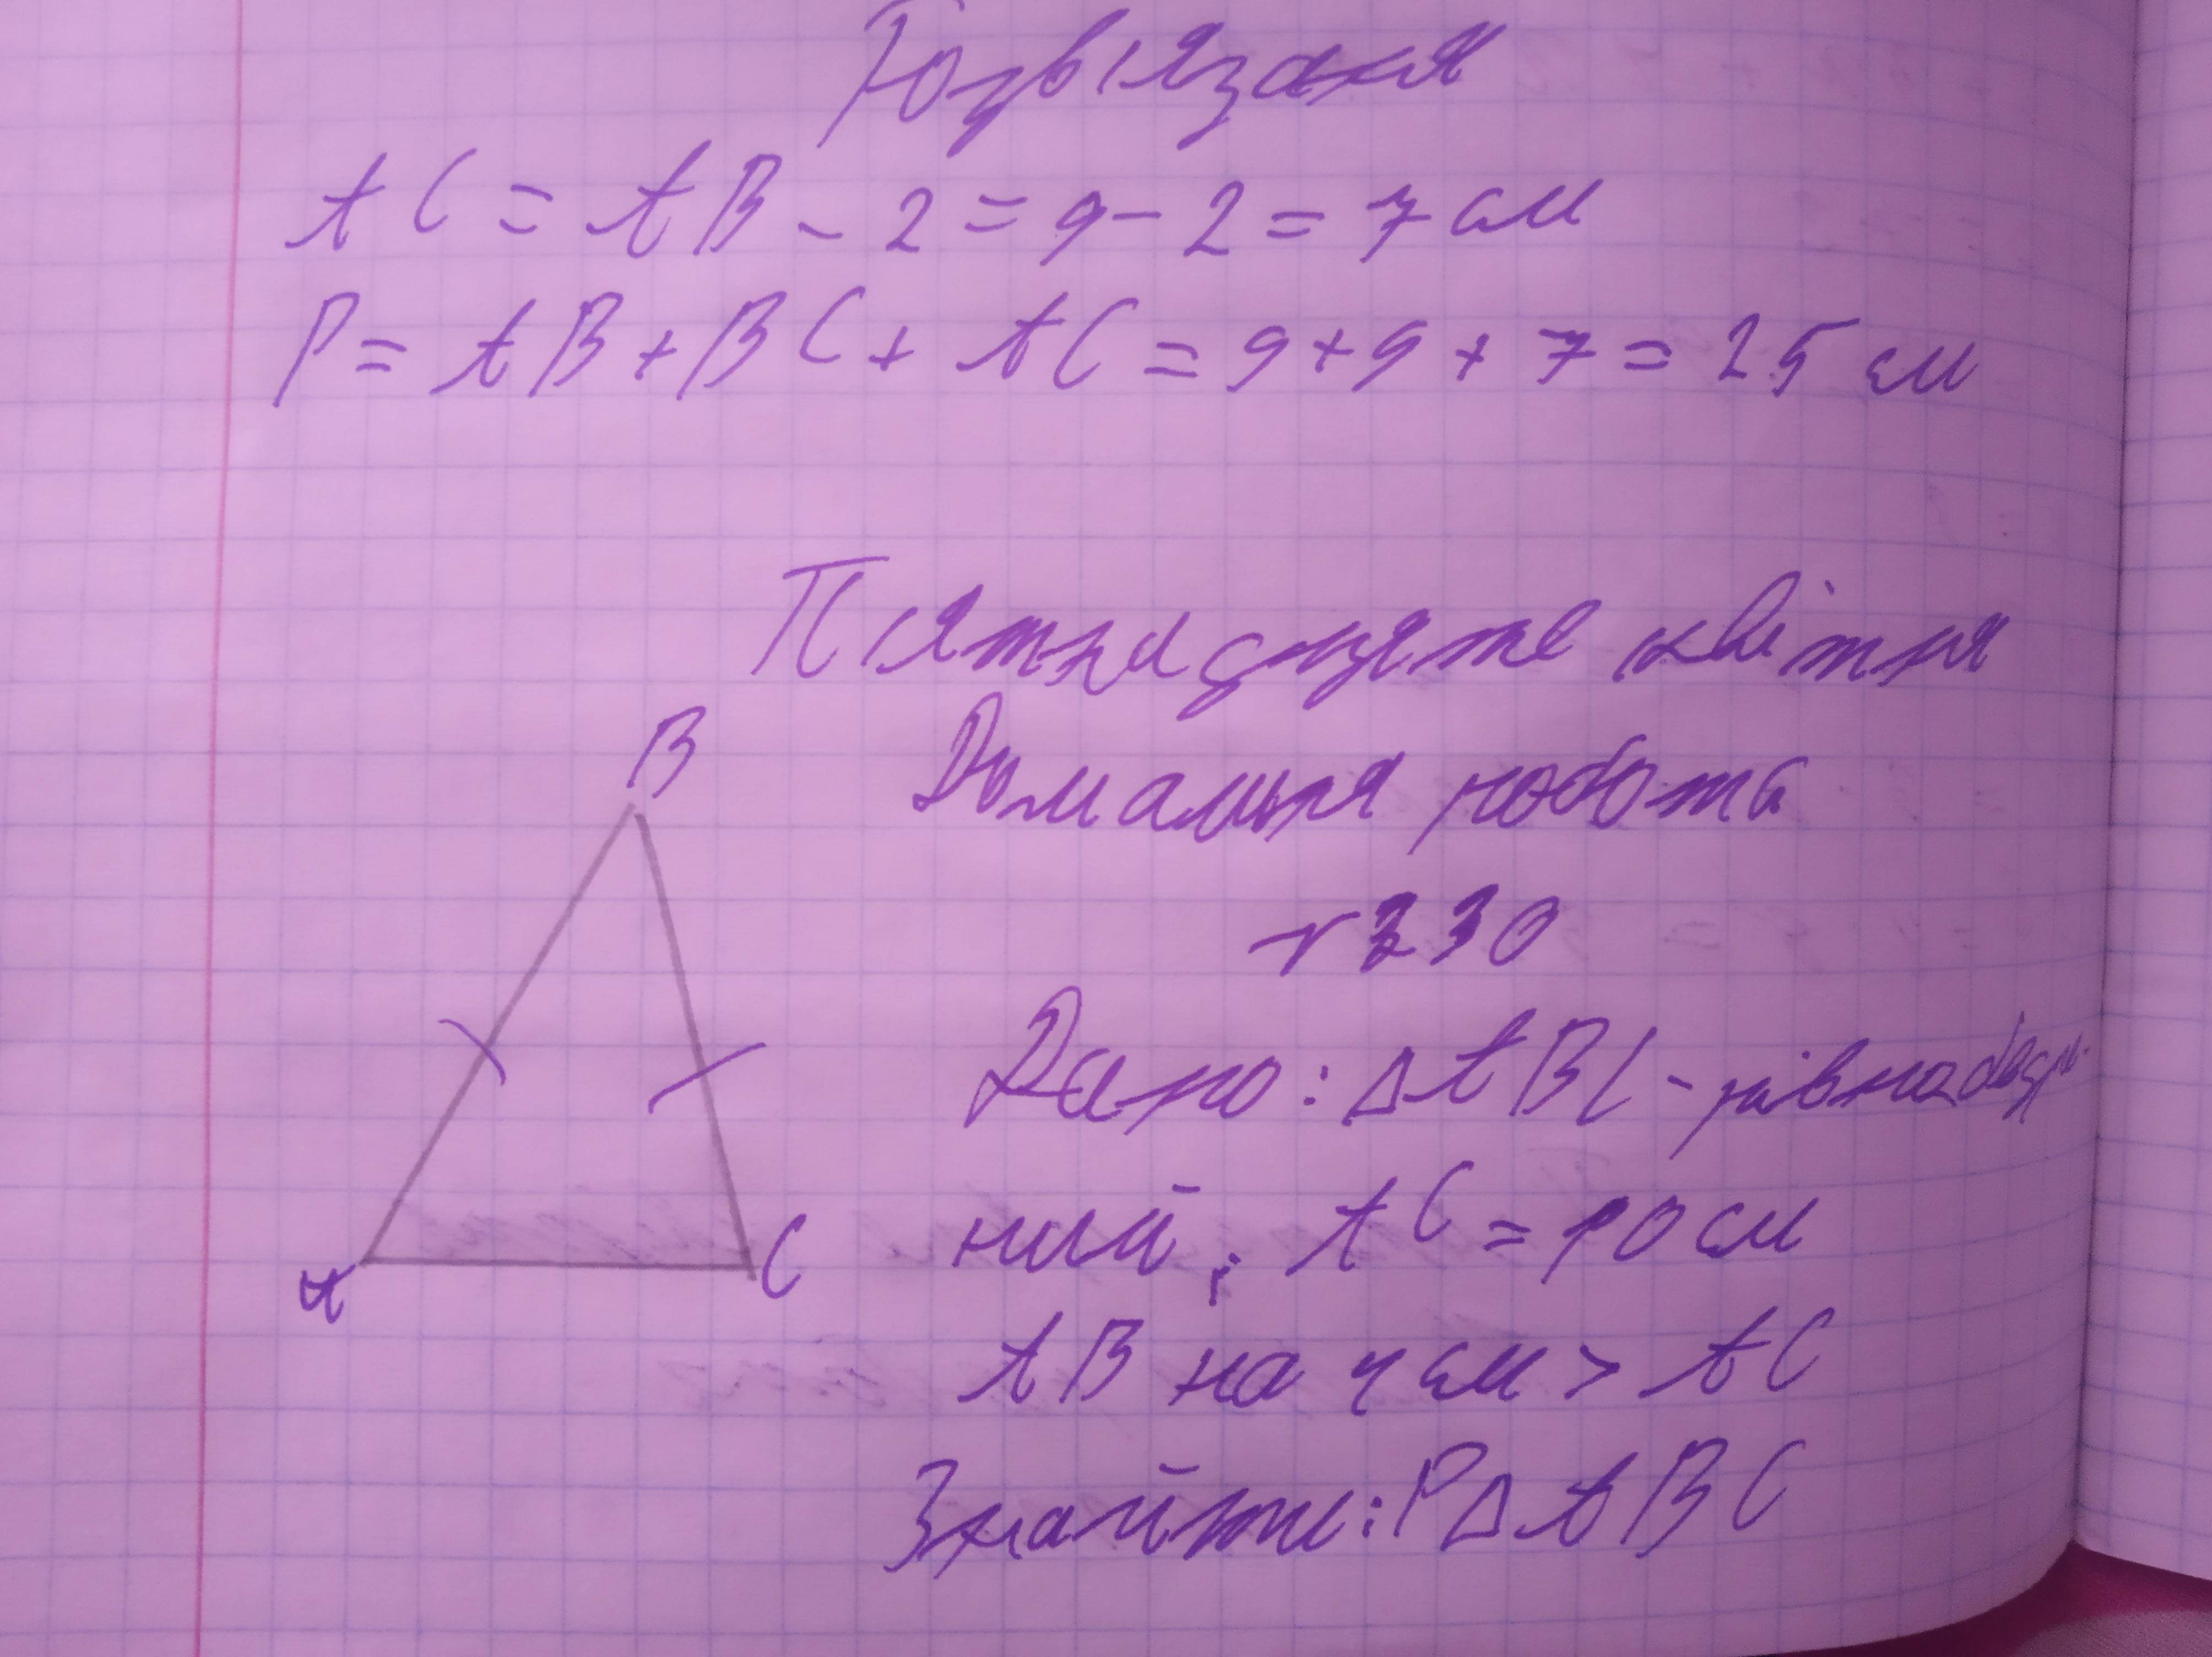 Розв'язаня
AC = AB - 2 = 9 - 2 = 7 см
P = AB + BC + AC = 9 + 9 + 7 = 25 см
П'ятнадцяте квітня
Домашня робота
B
№ 330
Дано: △ABC - рівнобедре-
ний, AC = 10 см
A C
AB на 4 см > AC
Знайти: P△ABC